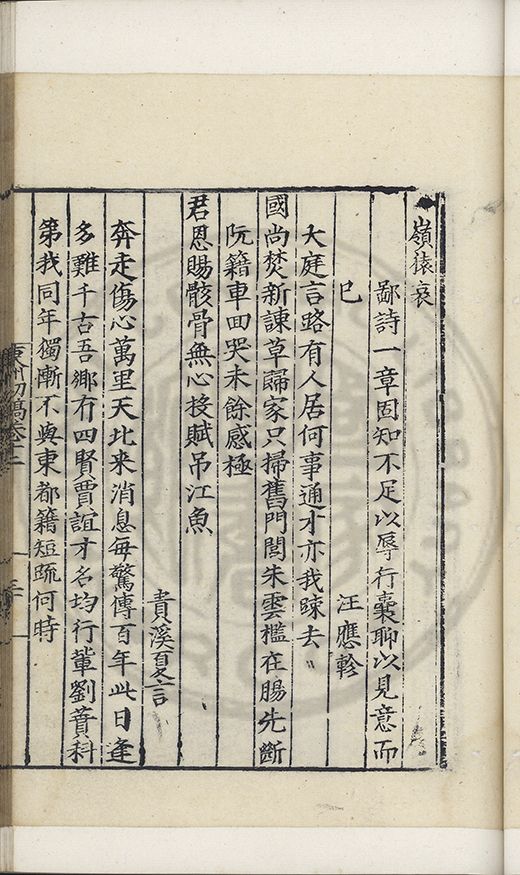 嶺猿哀
鄙詩一章固知不足以辱行橐聊以見意而
已　汪應軫
大庭言路有人居何事通才亦我踈去〻
國尚焚新諫草歸家只掃舊門閭朱雲檻在腸先斷
阮籍車回哭未餘感極
君恩賜骸骨無心投賦吊江魚
貴溪夏言
奔走傷心萬里天比来消息每驚傳百年此日逢
多難千古吾鄉有四賢賈誼才名均行輩劉蕡科
第我同年獨慚不與東都籍短疏何時
東州初稿卷十二